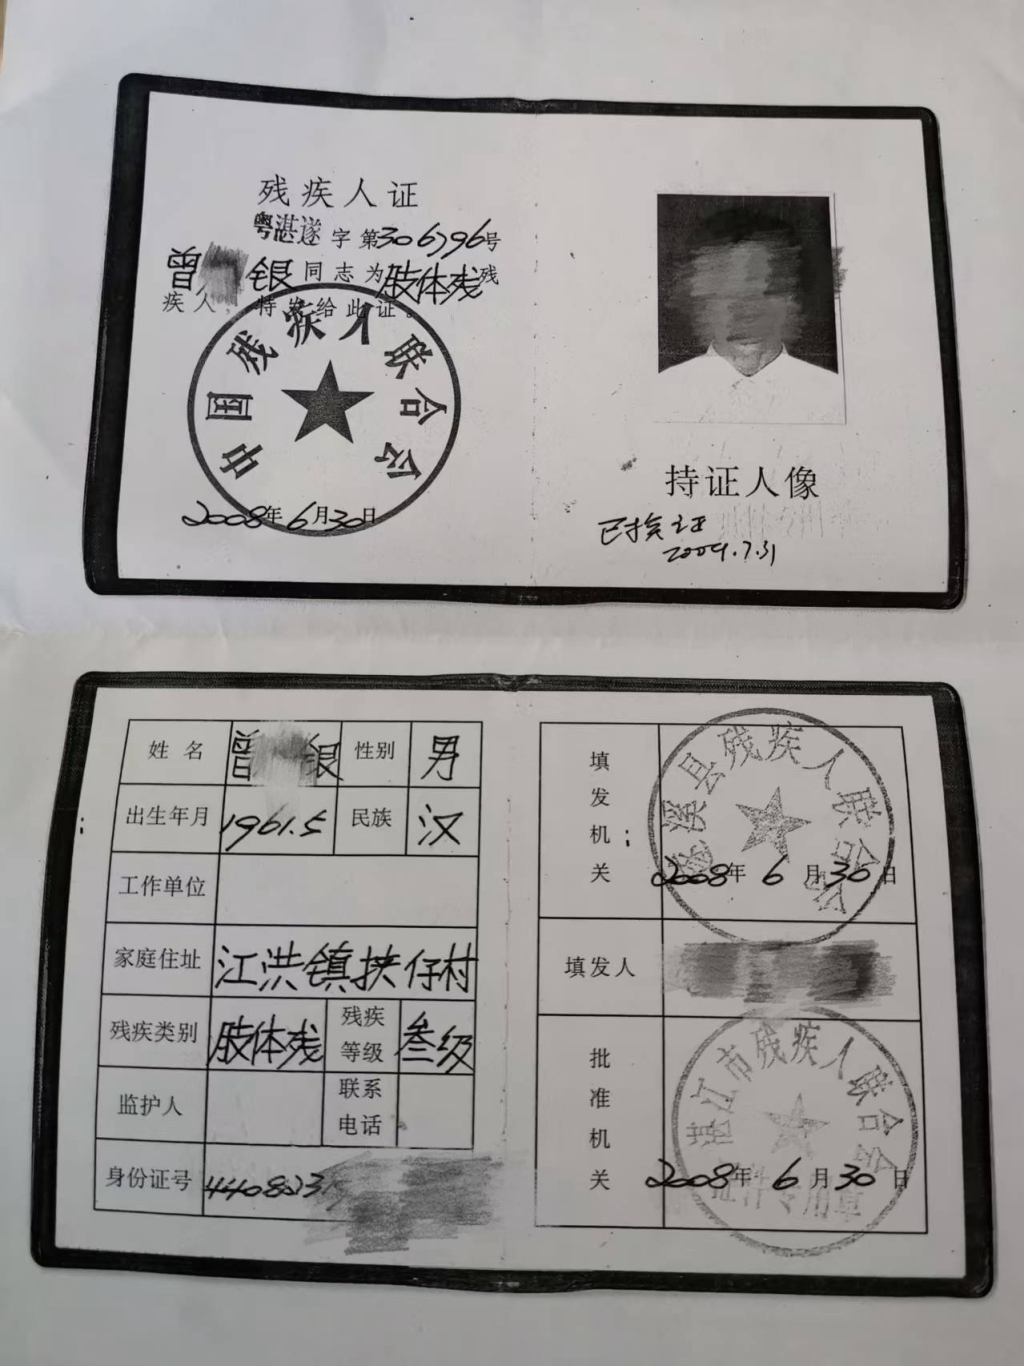 残疾人证
粤湛遂字第306796号
曾 银同志为肢体残残
疾人,特发给此证。
中国残疾人联合会
2008年6月30日
持证人像
已换证
2009.7.31
姓名 曾 银 性别 男
出生年月 1961.5 民族 汉
工作单位
家庭住址 江洪镇扶仔村
残疾类别 肢体残 残疾等级 叁级
监护人 联系电话
身份证号 440823
填发机关 遂溪县残疾人联合会
2008年6月30日
填发人
批准机关 湛江市残疾人联合会
证件专用章
2008年6月30日